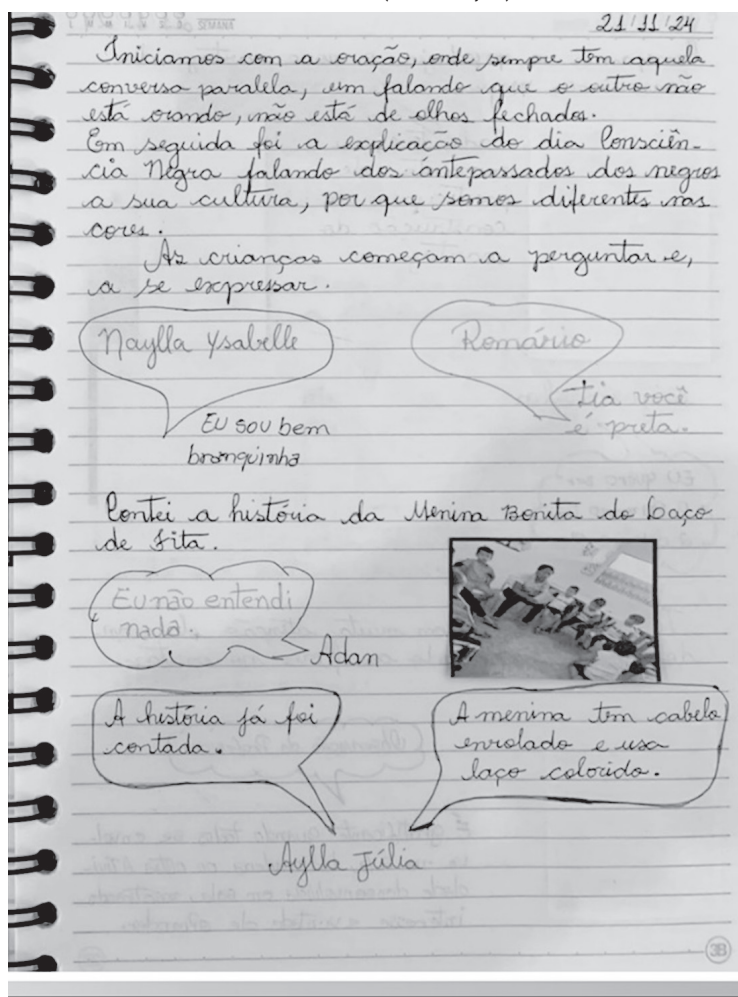 SEMANA
21/11/24
Iniciamos com a oração, onde sempre tem aquela
conversa paralela, um falando que o outro não
está orando, não está de olhos fechados.
Em seguida foi a explicação do dia Consciên-
cia Negra falando dos antepassados dos negros
a sua cultura, por que somos diferentes nas
cores.
As crianças começam a perguntar e,
a se expressar.
Naylla Ysabelle
Romário
Tia você
é preta.
Eu sou bem
branquinha
Contei a história da Menina Bonita do Laço
de Fita.
Eu não entendi
nada.
Adan
A história já foi
contada.
A menina tem cabelo
enrolado e usa
laço colorido.
Aylla Júlia
38